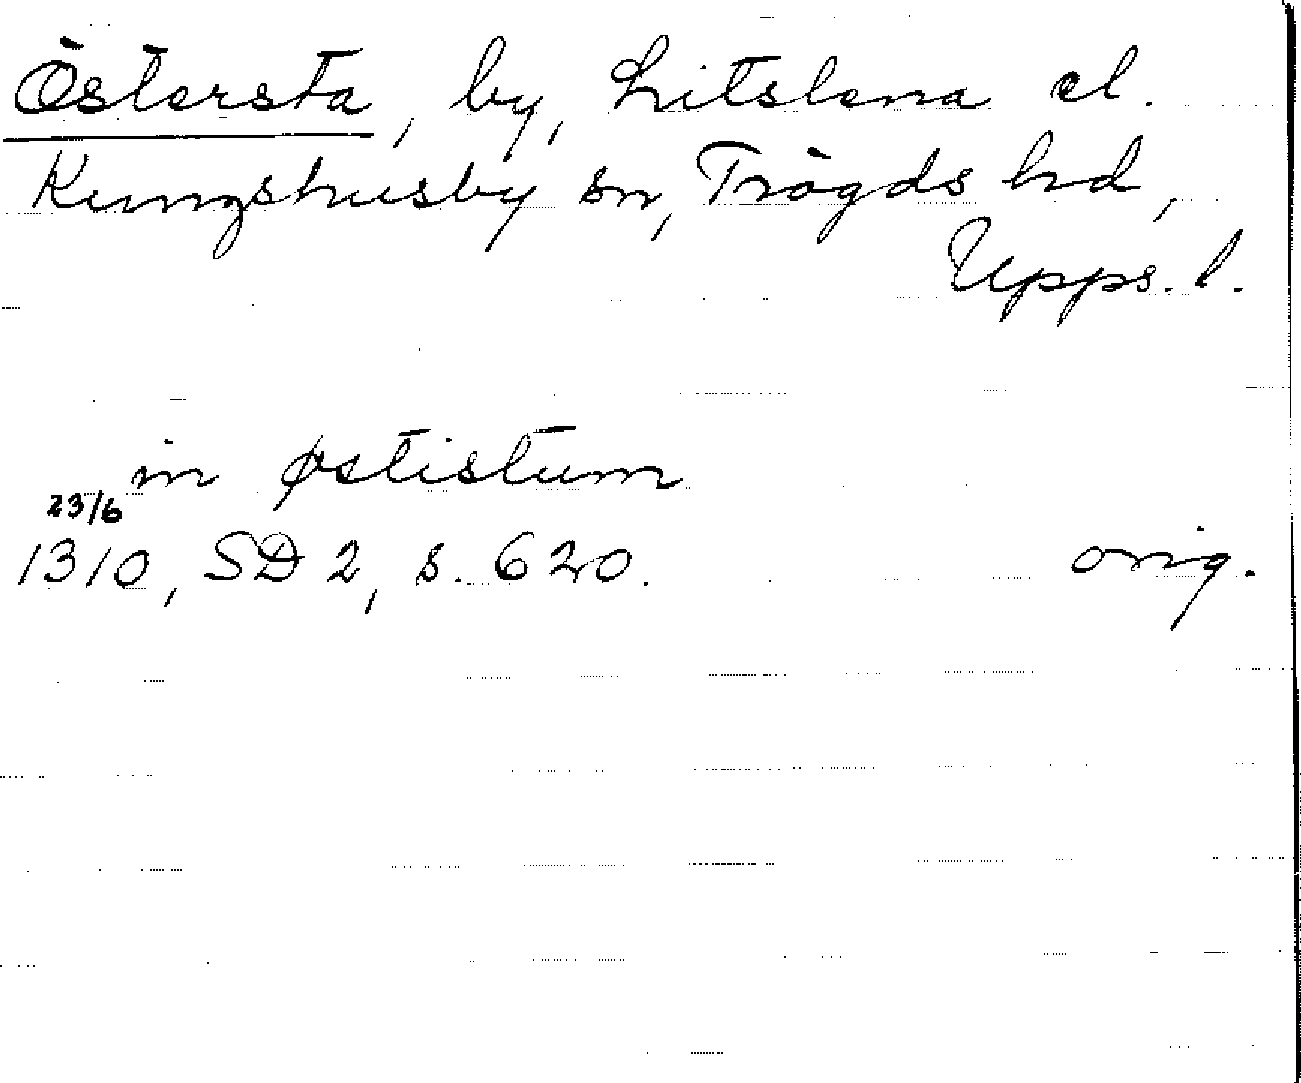 Östersta, by, Litslena el.
Kungshusby sn, Trögds hd,
Upps. l.
in østistum
23/6
1310, SD 2, s. 620. orig.